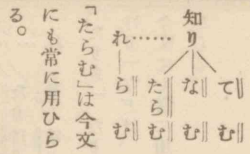 知り
てむ
なむ
たらむ
れ……らむ
「たらむ」は今文
にも常に用ひら
る。